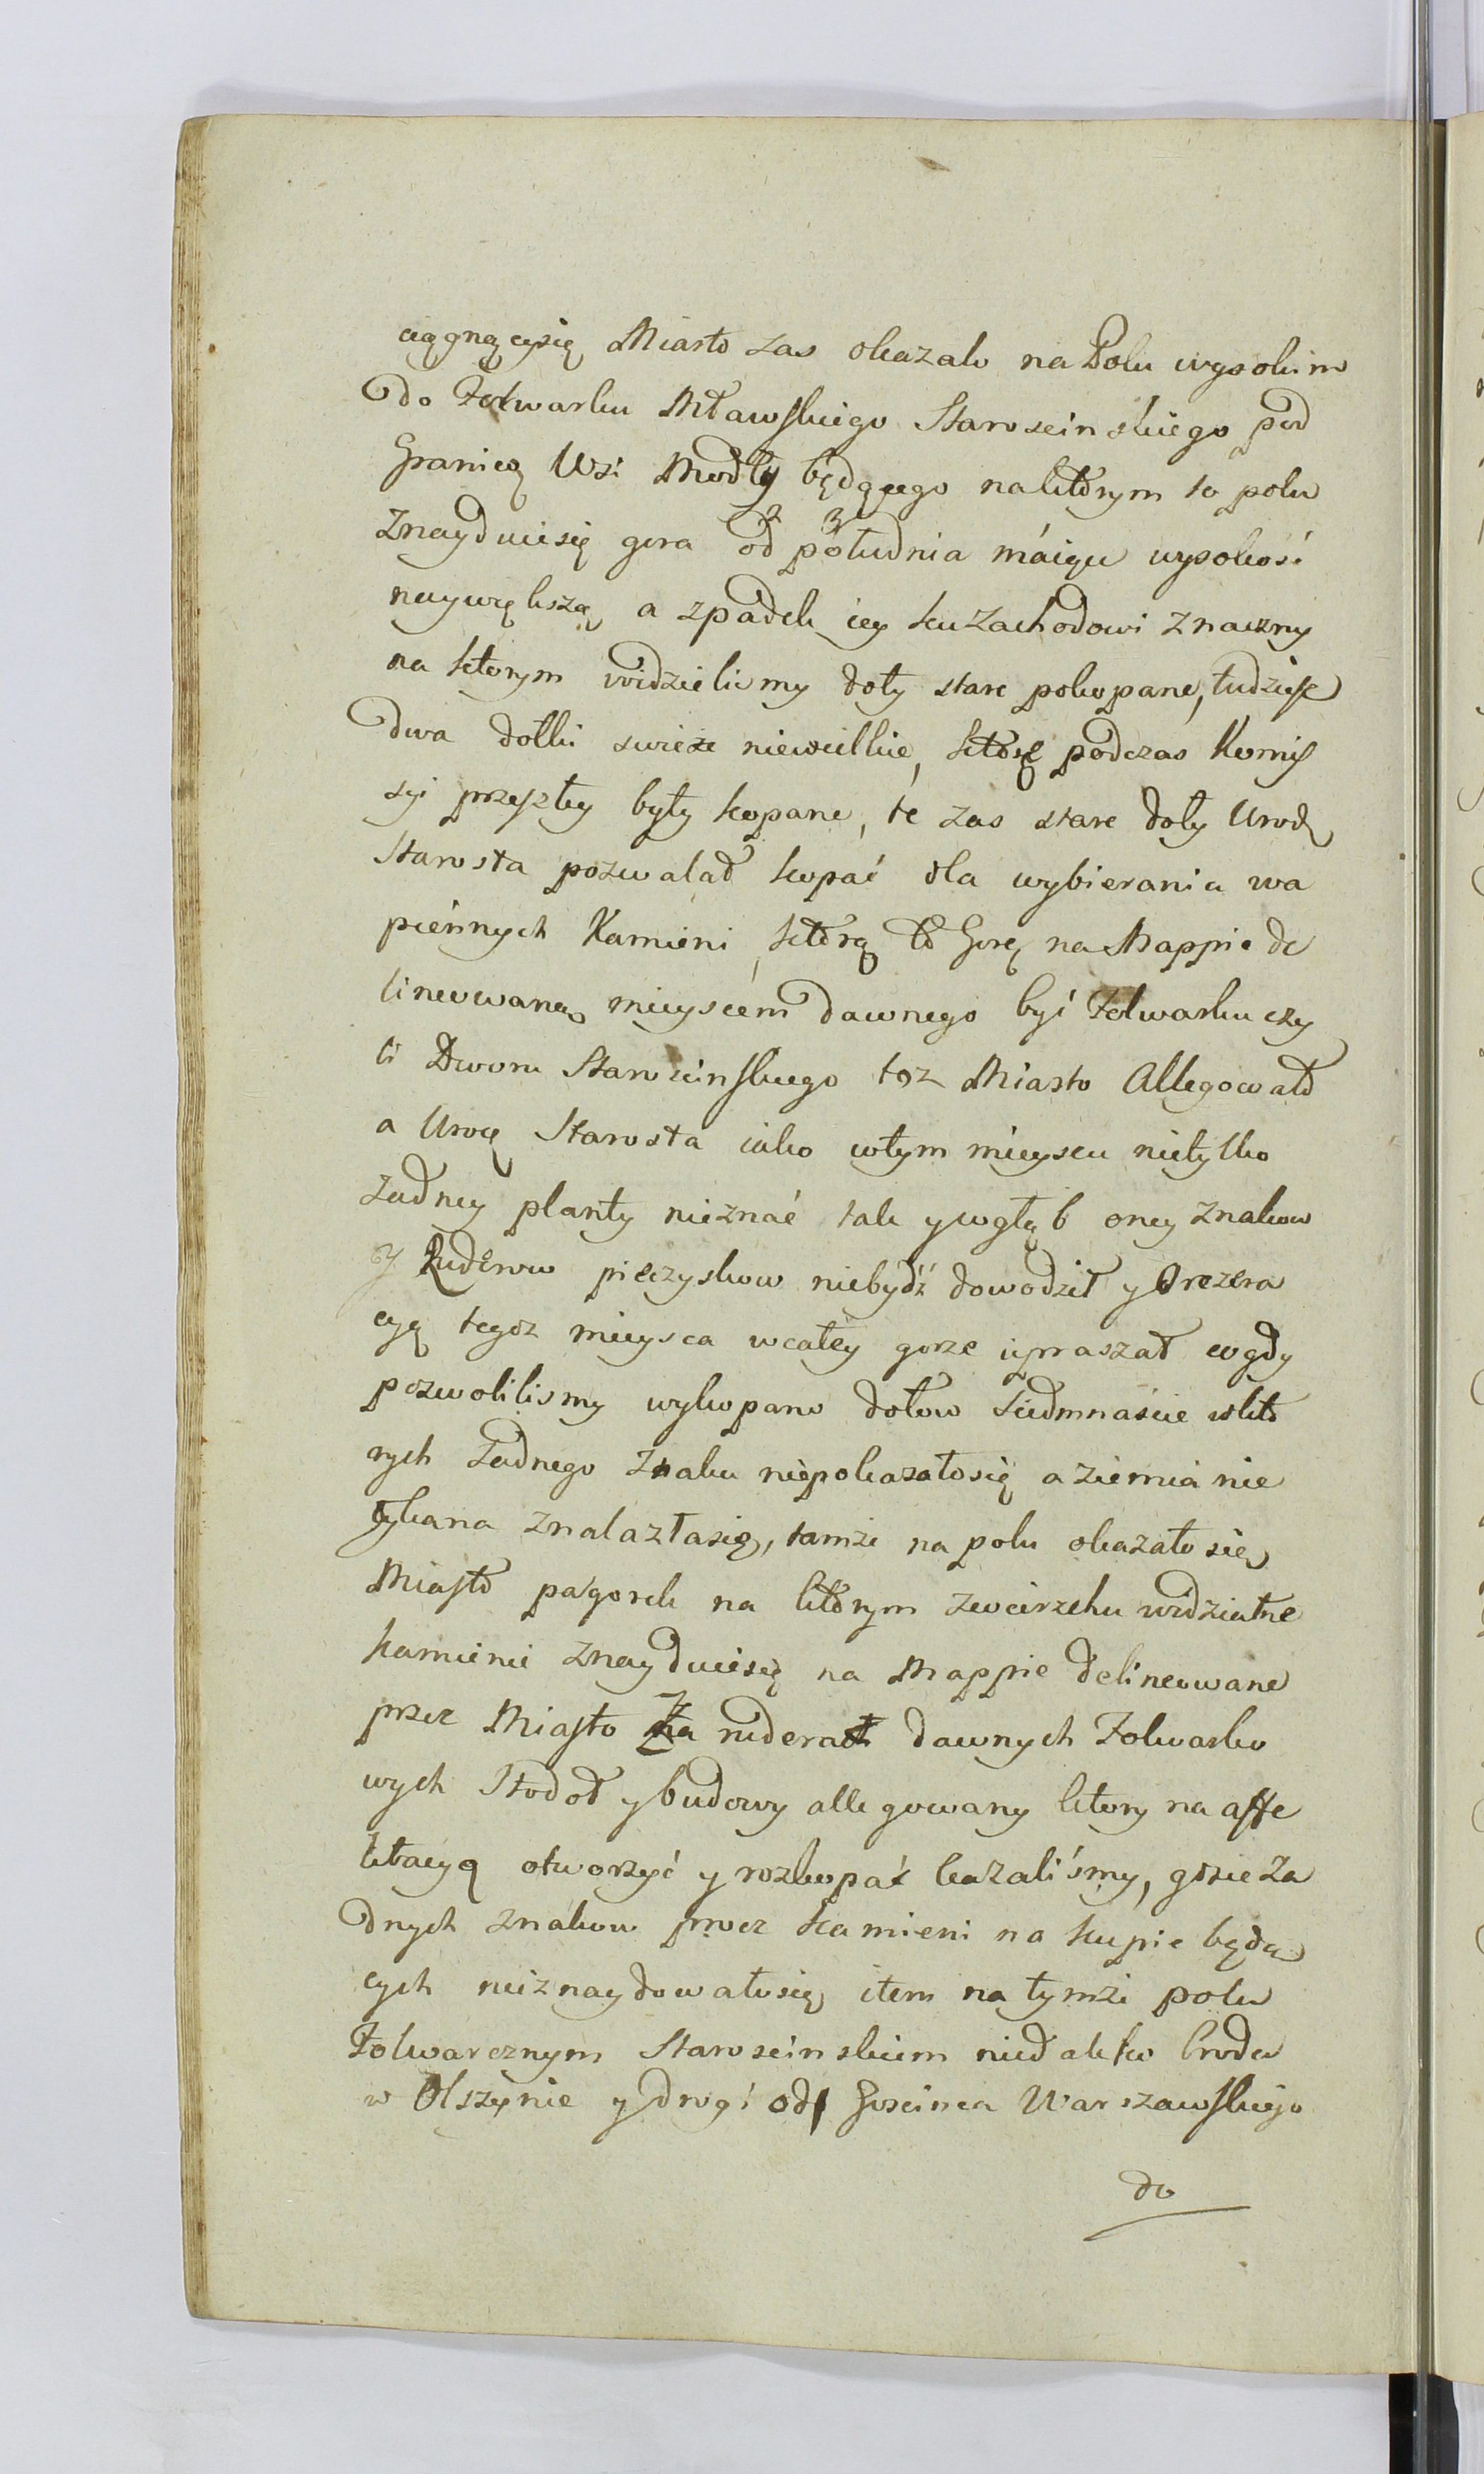 ciągnącysię Miasto zas okazało na Polu wysokim
do Folwarku Mławskiego Staroscinskiego pod
Granicą Wsi Modły będącego naktorym to polu
Znayduiesię gora od południa maiącu wysokość
naywiększą, a zpadek iey kuzachodowi znaczny
na ktorym widzielismy doły stare pokopane, tudzież
dwa dołki swieże niewielkie, które podczas Komis
syi przeszłey były kopane, te zas stare doły Urodz
Starosta pozwalał kopać dla wybierania wa
piennych Kamieni, którą to Gorę na Mappie de
lineowaną mieyscem dawnego być Folwarku czy
li Dworu Staroscinskiego toz Miasto Allegowało
a Urodz Starosta iako wtym mieyscu nietylko
żadney planty nieznać tak ywgłąb oney znakow
Y Ruderow pieczyskow niebydź dowodził y
cyą tegoz mieysca wcałey gorze upraszał co gdy
pozwolilismy wykopano dołow siedmnaście wktó
rych żadnego znaku niepokazałosię a ziemia nie
tykana znalazłasię, tamże na polu okazało się
Miasto pagorek na którym zwierzchu widzialne
kamienie znayduiesię na Mappie delineowane
przez Miasto Za ruderach dawnych Folwarko
wych Stodoł y budowy allegowany ktory na affe
ktacyą otworzyć y rozkopać kazaliśmy, gdzie ża
dnych znakow procz kamieni na kupie będą
cych nieznaydowałosię item na tymże polu
Folwarcznym Staroscinskiem niedaleko brodu
w Olszynie y drogi od Goscinca Warszawskiego
do